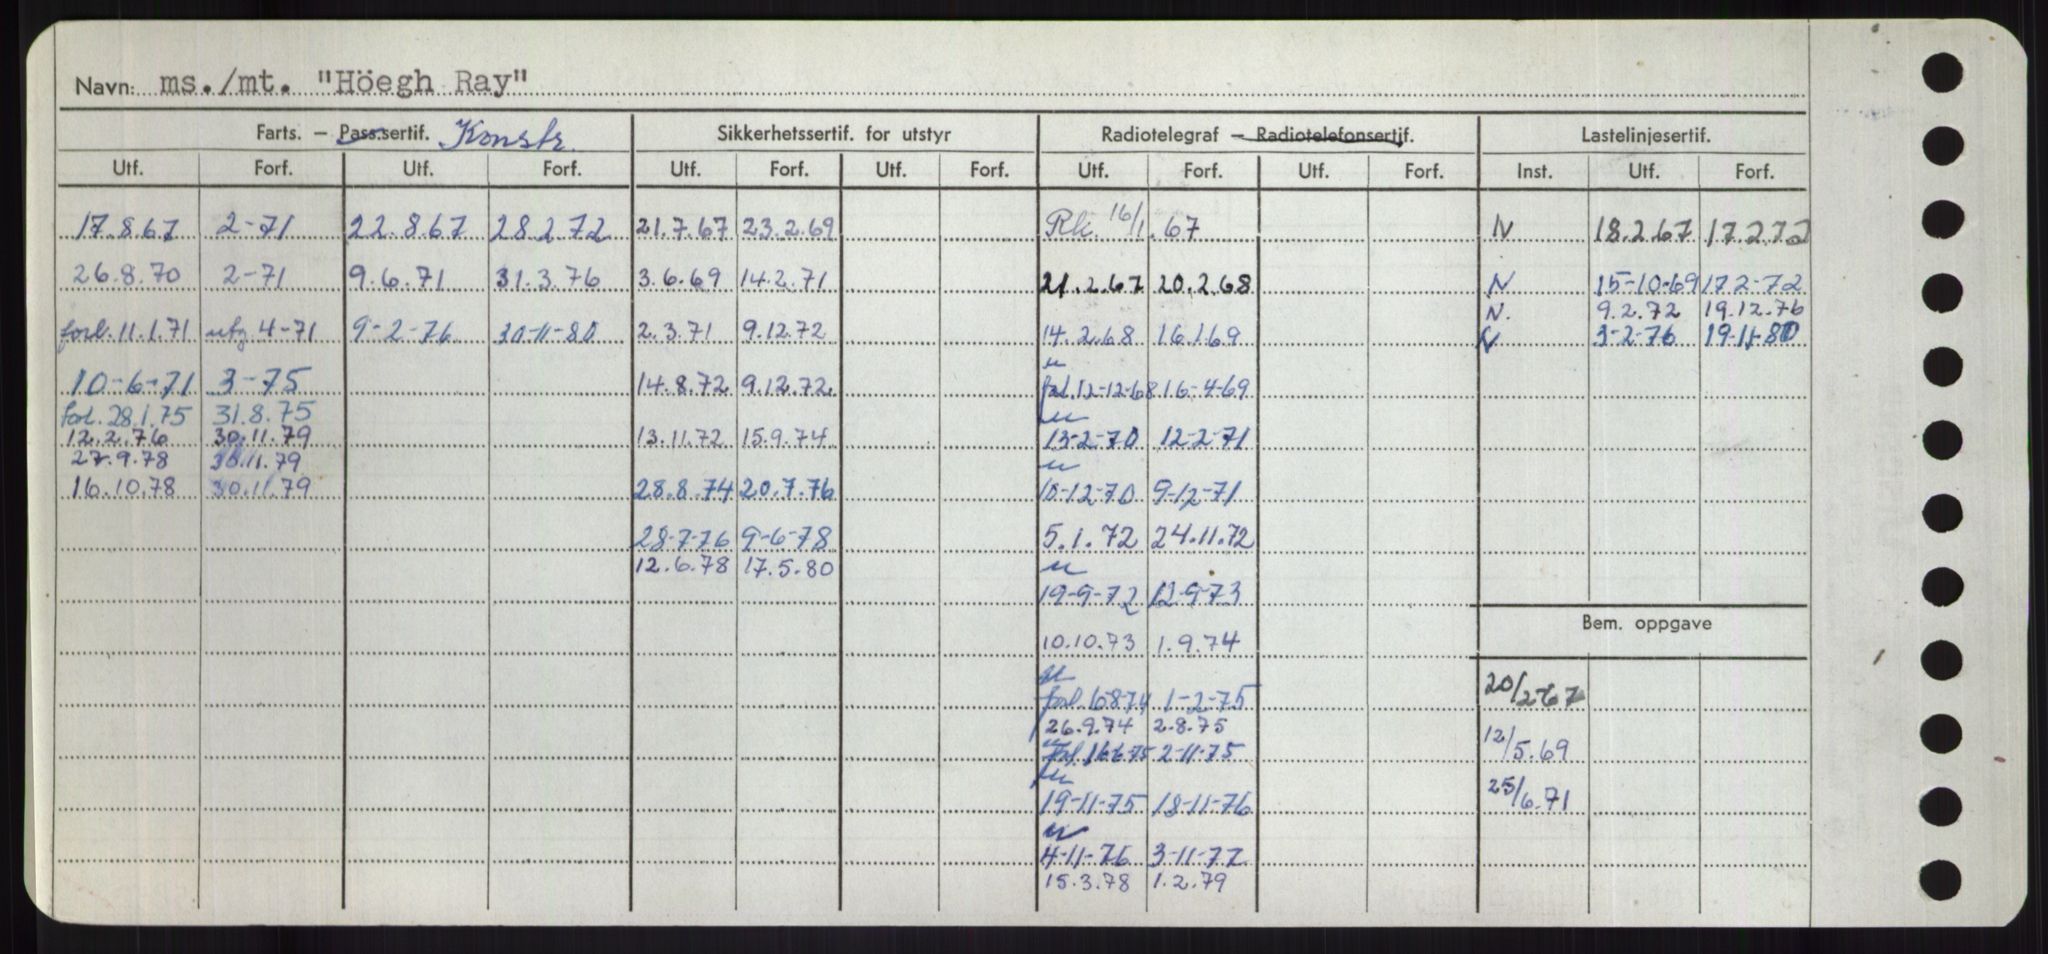 Navn: ms./mt. "Höegh Ray"
Farts. – Pass.sertif. Konstr. Sikkerhetssertif. for utstyr Radiotelegraf – Radiotelefonsertif. Lastelinjesertif.
Utf. Forf. Utf. Forf. Utf. Forf. Utf. Forf. Utf. Forf. Utf. Forf. Inst. Utf. Forf.
17.8.67 2-71 22.8.67 28.2.72 21.7.67 23.2.69 Rk. 16/1.67 N 18.2.67 17.2.72
26.8.70 2-71 9.6.71 31.3.76 3.6.69 14.2.71 21.2.67 20.2.68 N 15-10-69 17.2-72
N. 9.2.72 19.12.76
forl. 11.1.71 utg 4-71 9-2-76 30-11-80 2.3.71 9.12.72 14.2.68 16.1.69 V 3-2-76 19-11-80
u
10-6-71 3-75 14.8.72 9.12.72 forl. 12-12-68 16-4-69
forl. 28.1.75 31.8.75 u
12.2.76 30.11.79 13.11.72 15.9.74 13-2-70 12-2-71
27.9.78 30.11.79 u
16.10.78 30.11.79 28.8.74 20.7.76 10-12-70 9-12-71
28-7-76 9-6-78 5.1.72 24.11.72
12.6.78 17.5.80 u
19-9-72 12-9-73
Bem. oppgave
10.10.73 1.9.74
u
forl. 16.8.74 1-2-75 20/2-67
26.9.74 2.8.75
u
Forl. 16-6-75 2-11-75 12/5.69
u
19-11-75 18-11-76 25/6.71
u
4-11-76 3-11-77
15.3.78 1.2.79